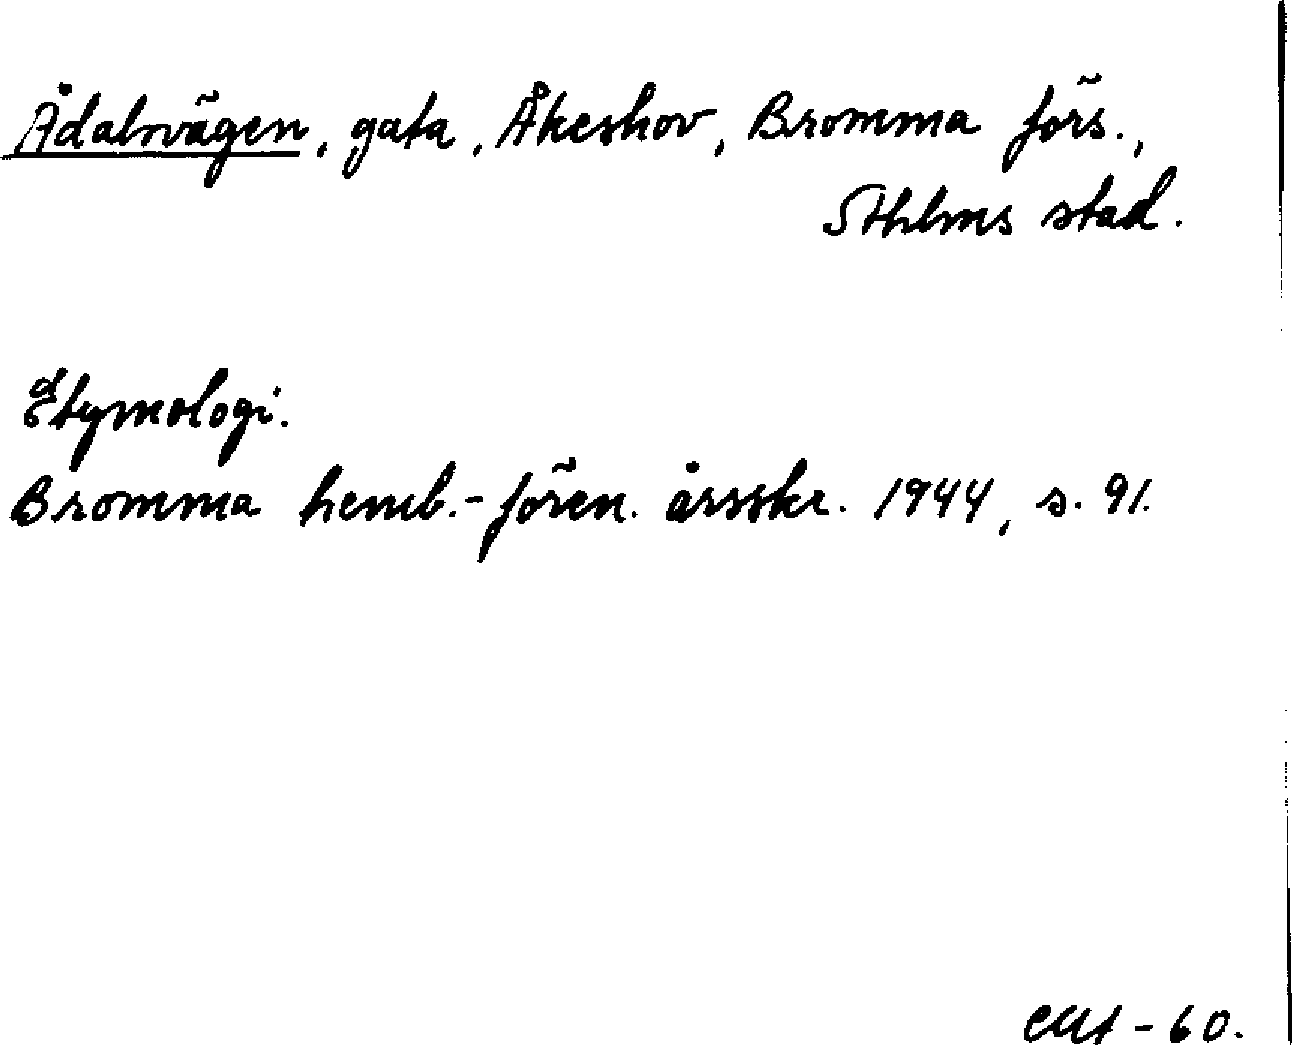 Ådalsvägen, gata, Åkeshov, Bromma förs.,
Sthlms stad.
Etymologi.
Bromma hemb.-fören. årsskr. 1944, s. 91.
-60.